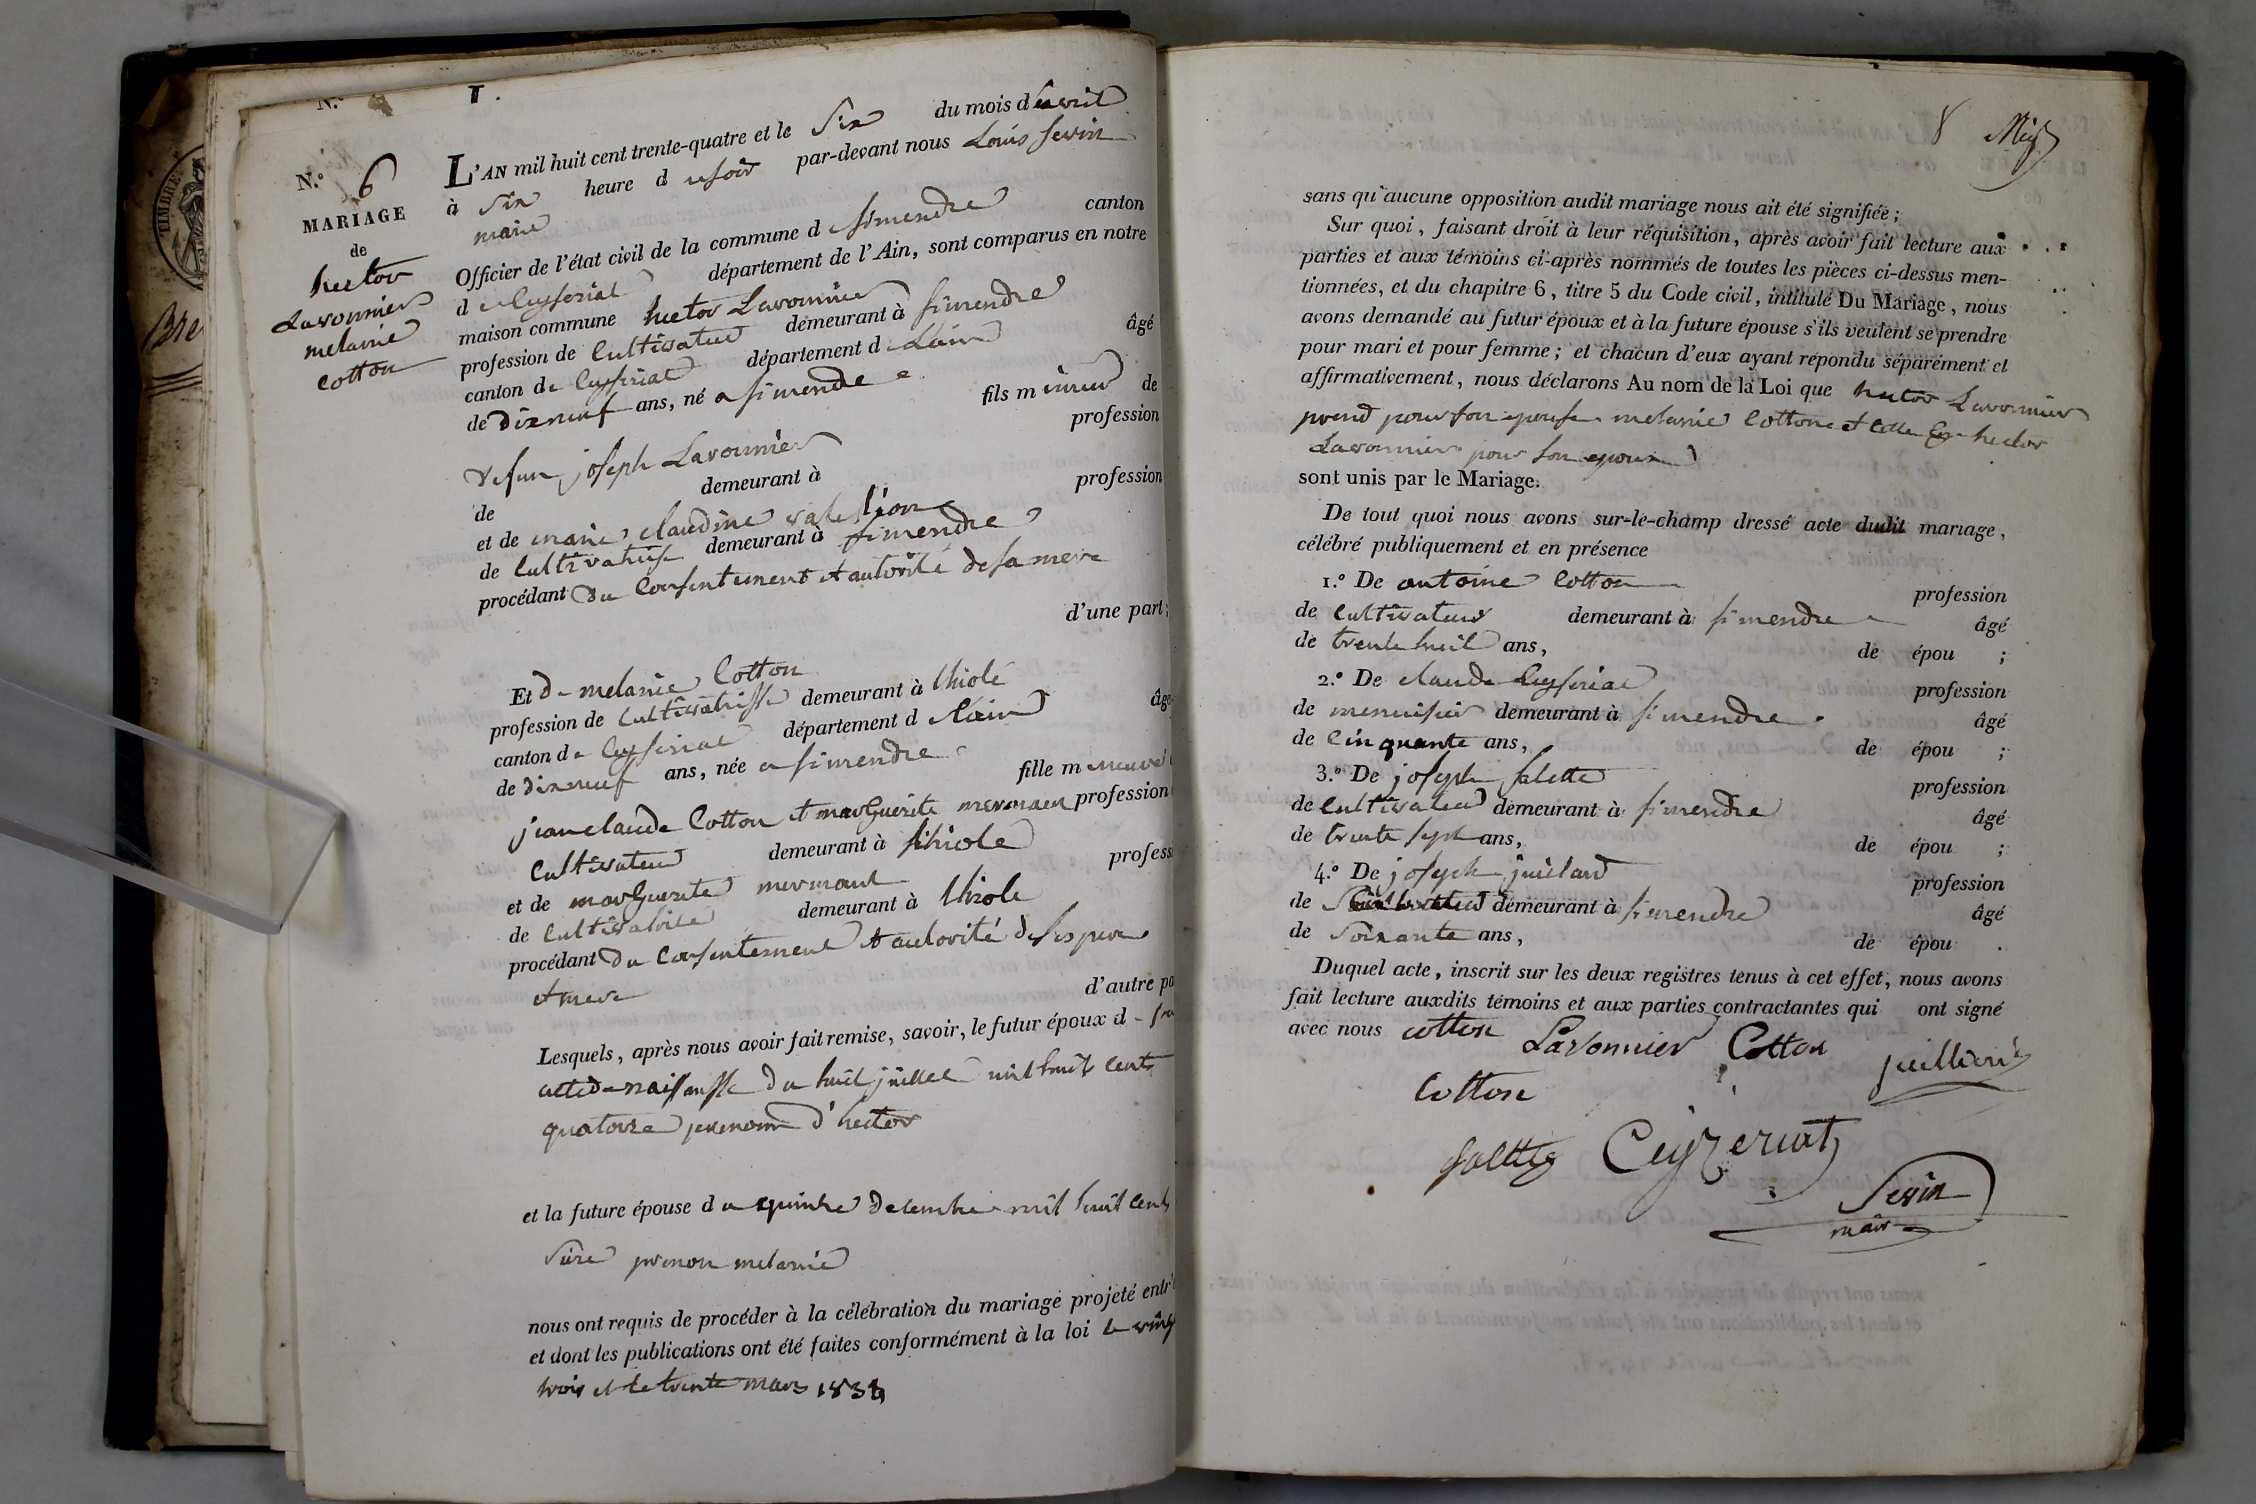 N.º I.
N.º 6
MARIAGE
de
hector
Lavonnier
melanie
cotton
L'AN mil huit cent trente-quatre et le Six du mois d'avril
à Six heure d u soir par-devant nous Louis Sevin
maire
Officier de l'état civil de la commune d simendre canton
d e Ceyseriat département de l'Ain, sont comparus en notre
maison commune hector Lavonnier
profession de Cultivateur demeurant à simendre
canton de Ceyseriat département d e Lain âgé
de dix neuf ans, né a simendre fils mineur de
de feu joseph Lavonnier profession
de demeurant à
et de marie claudine profession
de Cultivatrise demeurant à simendre
procédant du Consentement et autorité de sa mere
d'une part;
Et de melanie Cotton
profession de Cultivatrisse demeurant à
canton de Ceyseriat département d e Lain âgé
de dix neuf ans, née a simendre fille mineure
jean claude Cotton et marguerite profession
Cultivateur demeurant à
et de marguerite mermant profess
de Cultivatrice demeurant à
procédant du Consentement et autorité de ses pere
et mere d'autre pa
Lesquels, après nous avoir fait remise, savoir, le futur époux d e
acte de naissansse du huit juillet mil huit cent
quatorze prenom d'hector
et la future épouse d u quinze decembre mil huit cent
prenon melanie
nous ont requis de procéder à la célébration du mariage projeté entr
et dont les publications ont été faites conformément à la loi le vingt
trois et le trente mars 1834
8
sans qu'aucune opposition audit mariage nous ait été signifiée;
Sur quoi, faisant droit à leur réquisition, après avoir fait lecture aux
parties et aux témoins ci-après nommés de toutes les pièces ci-dessus men-
tionnées, et du chapitre 6, titre 5 du Code civil, intitulé Du Mariage, nous
avons demandé au futur époux et à la future épouse s'ils veulent se prendre
pour mari et pour femme; et chacun d'eux ayant répondu séparément et
affirmativement, nous déclarons Au nom de la Loi que hector Lavonnier
prend pour son epouse melanie Cotton et celle cy hector
Lavonnier pour son epoux
sont unis par le Mariage.
De tout quoi nous avons sur-le-champ dressé acte dudit mariage,
célébré publiquement et en présence
1.º De antoine Cotton profession
de Cultivateur demeurant à simendre âgé
de trente huit ans, de épou ;
2.º De claude Ceyseriat profession
de menuisier demeurant à simendre âgé
de Cinquante ans, de épou ;
3.º De joseph salette profession
de Cultivateur demeurant à simendre âgé
de trente sept ans, de épou ;
4.º De joseph profession
de demeurant à simendre âgé
de soixante ans, de épou .
Duquel acte, inscrit sur les deux registres tenus à cet effet, nous avons
fait lecture auxdits témoins et aux parties contractantes qui ont signé
avec nous cotton Lavonnier Cotton
Cotton
Ceyzeriat
Sevin
maire